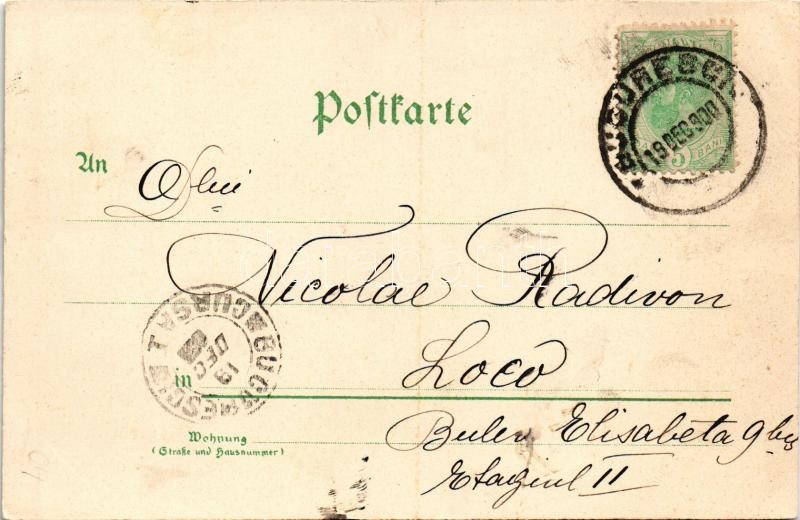 BUCURESCI
19 DEC 900
5 BANI
Postkarte
An
Dlui
Nicolae Radivon
BUCURESCI
CURSA 1
19 DEC
in
Loco
Wohnung
(Straße und Hausnummer)
Bulev Elisabeta 9 bis
Etagiul II